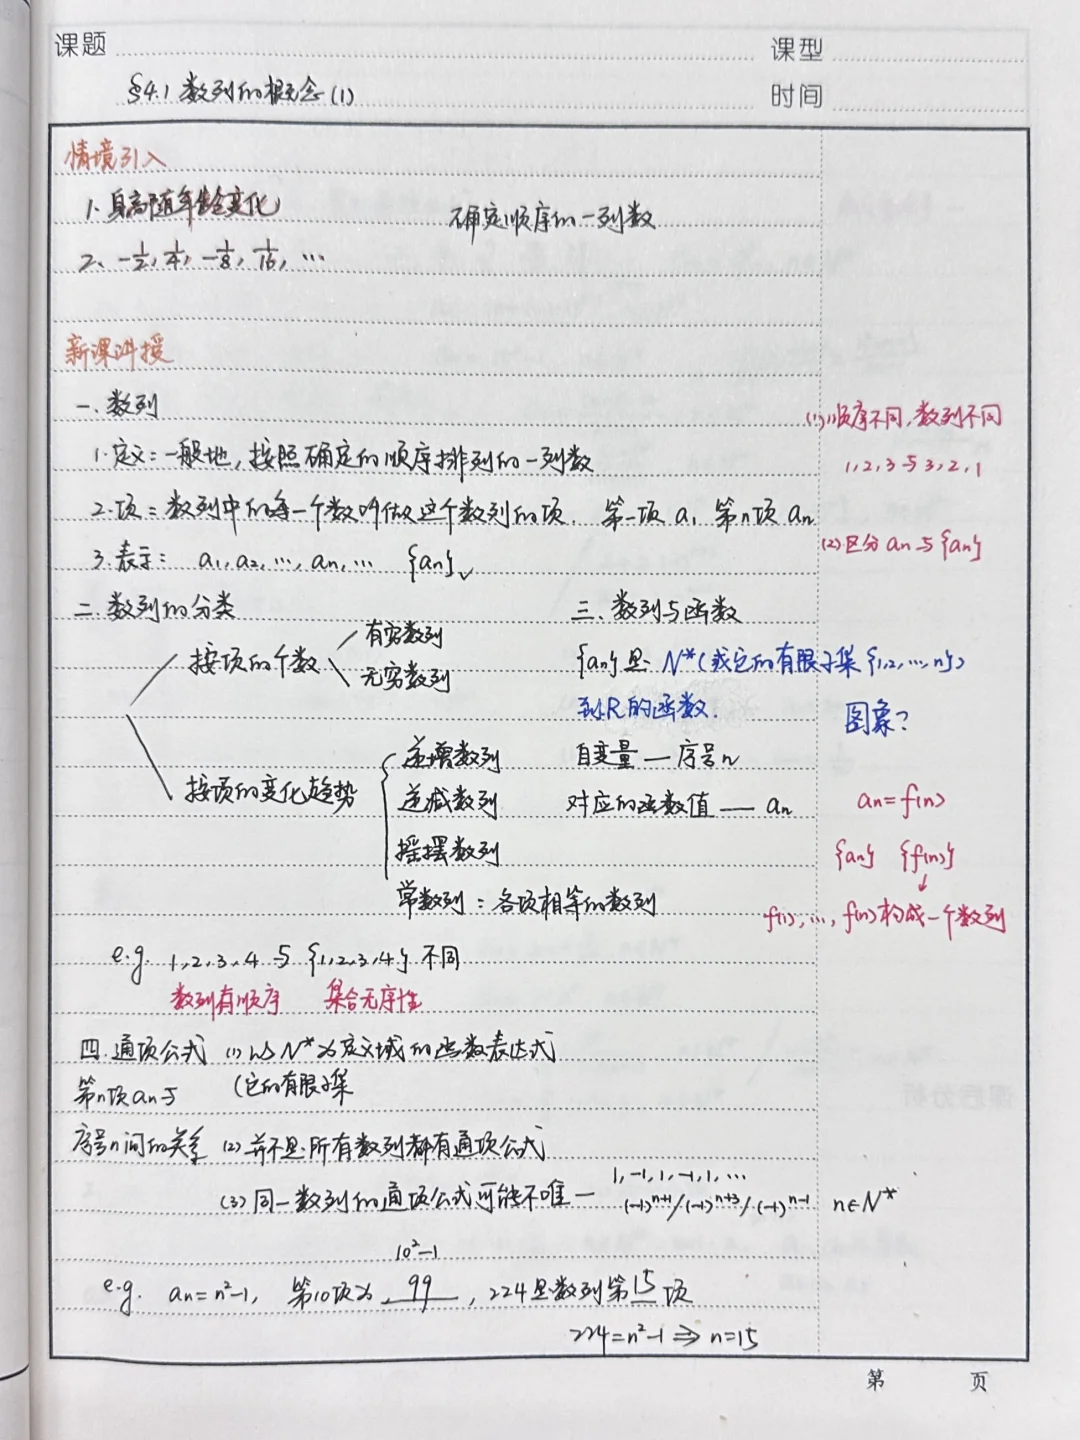 课题
课型
§4.1 数列的概念(1)
时间
情境引入
1. 身高随年龄变化
确定顺序的一列数
2、-1/2, 1/4, -1/8, 1/16, …
新课讲授
一. 数列
(1) 顺序不同,数列不同
1. 定义: 一般地, 按照确定的顺序排列的一列数
1,2,3与3,2,1
2. 项: 数列中的每一个数叫做这个数列的项. 第一项 a₁ 第n项 aₙ
(2) 区分 aₙ 与 {aₙ}
3. 表示: a₁, a₂, …, aₙ, … {aₙ}
二. 数列的分类
按项的个数
有穷数列
无穷数列
按项的变化趋势
递增数列
递减数列
摇摆数列
常数列: 各项相等的数列
三. 数列与函数
{aₙ}是 N*(或它的有限子集{1,2,…,n})
到R的函数.
图象?
自变量 — 序号n
对应的函数值 — aₙ
aₙ=f(n)
{aₙ} {f(n)}
↓
f(1), …, f(n)构成一个数列
e.g. 1,2,3,4 与 {1,2,3,4} 不同
数列有顺序 集合无序性
四. 通项公式 (1) 以N*为定义域的函数表达式
第n项aₙ与 (它的有限子集
序号n间的关系 (2) 并不是所有数列都有通项公式
1,-1,1,-1,1,…
(3) 同一数列的通项公式可能不唯一 (-1)ⁿ⁺¹/(-1)ⁿ⁺³/(-1)ⁿ⁻¹ n∈N*
10²-1
e.g. aₙ=n²-1, 第10项为 99 , 224是数列第15项
224=n²-1⇒n=15
第 页